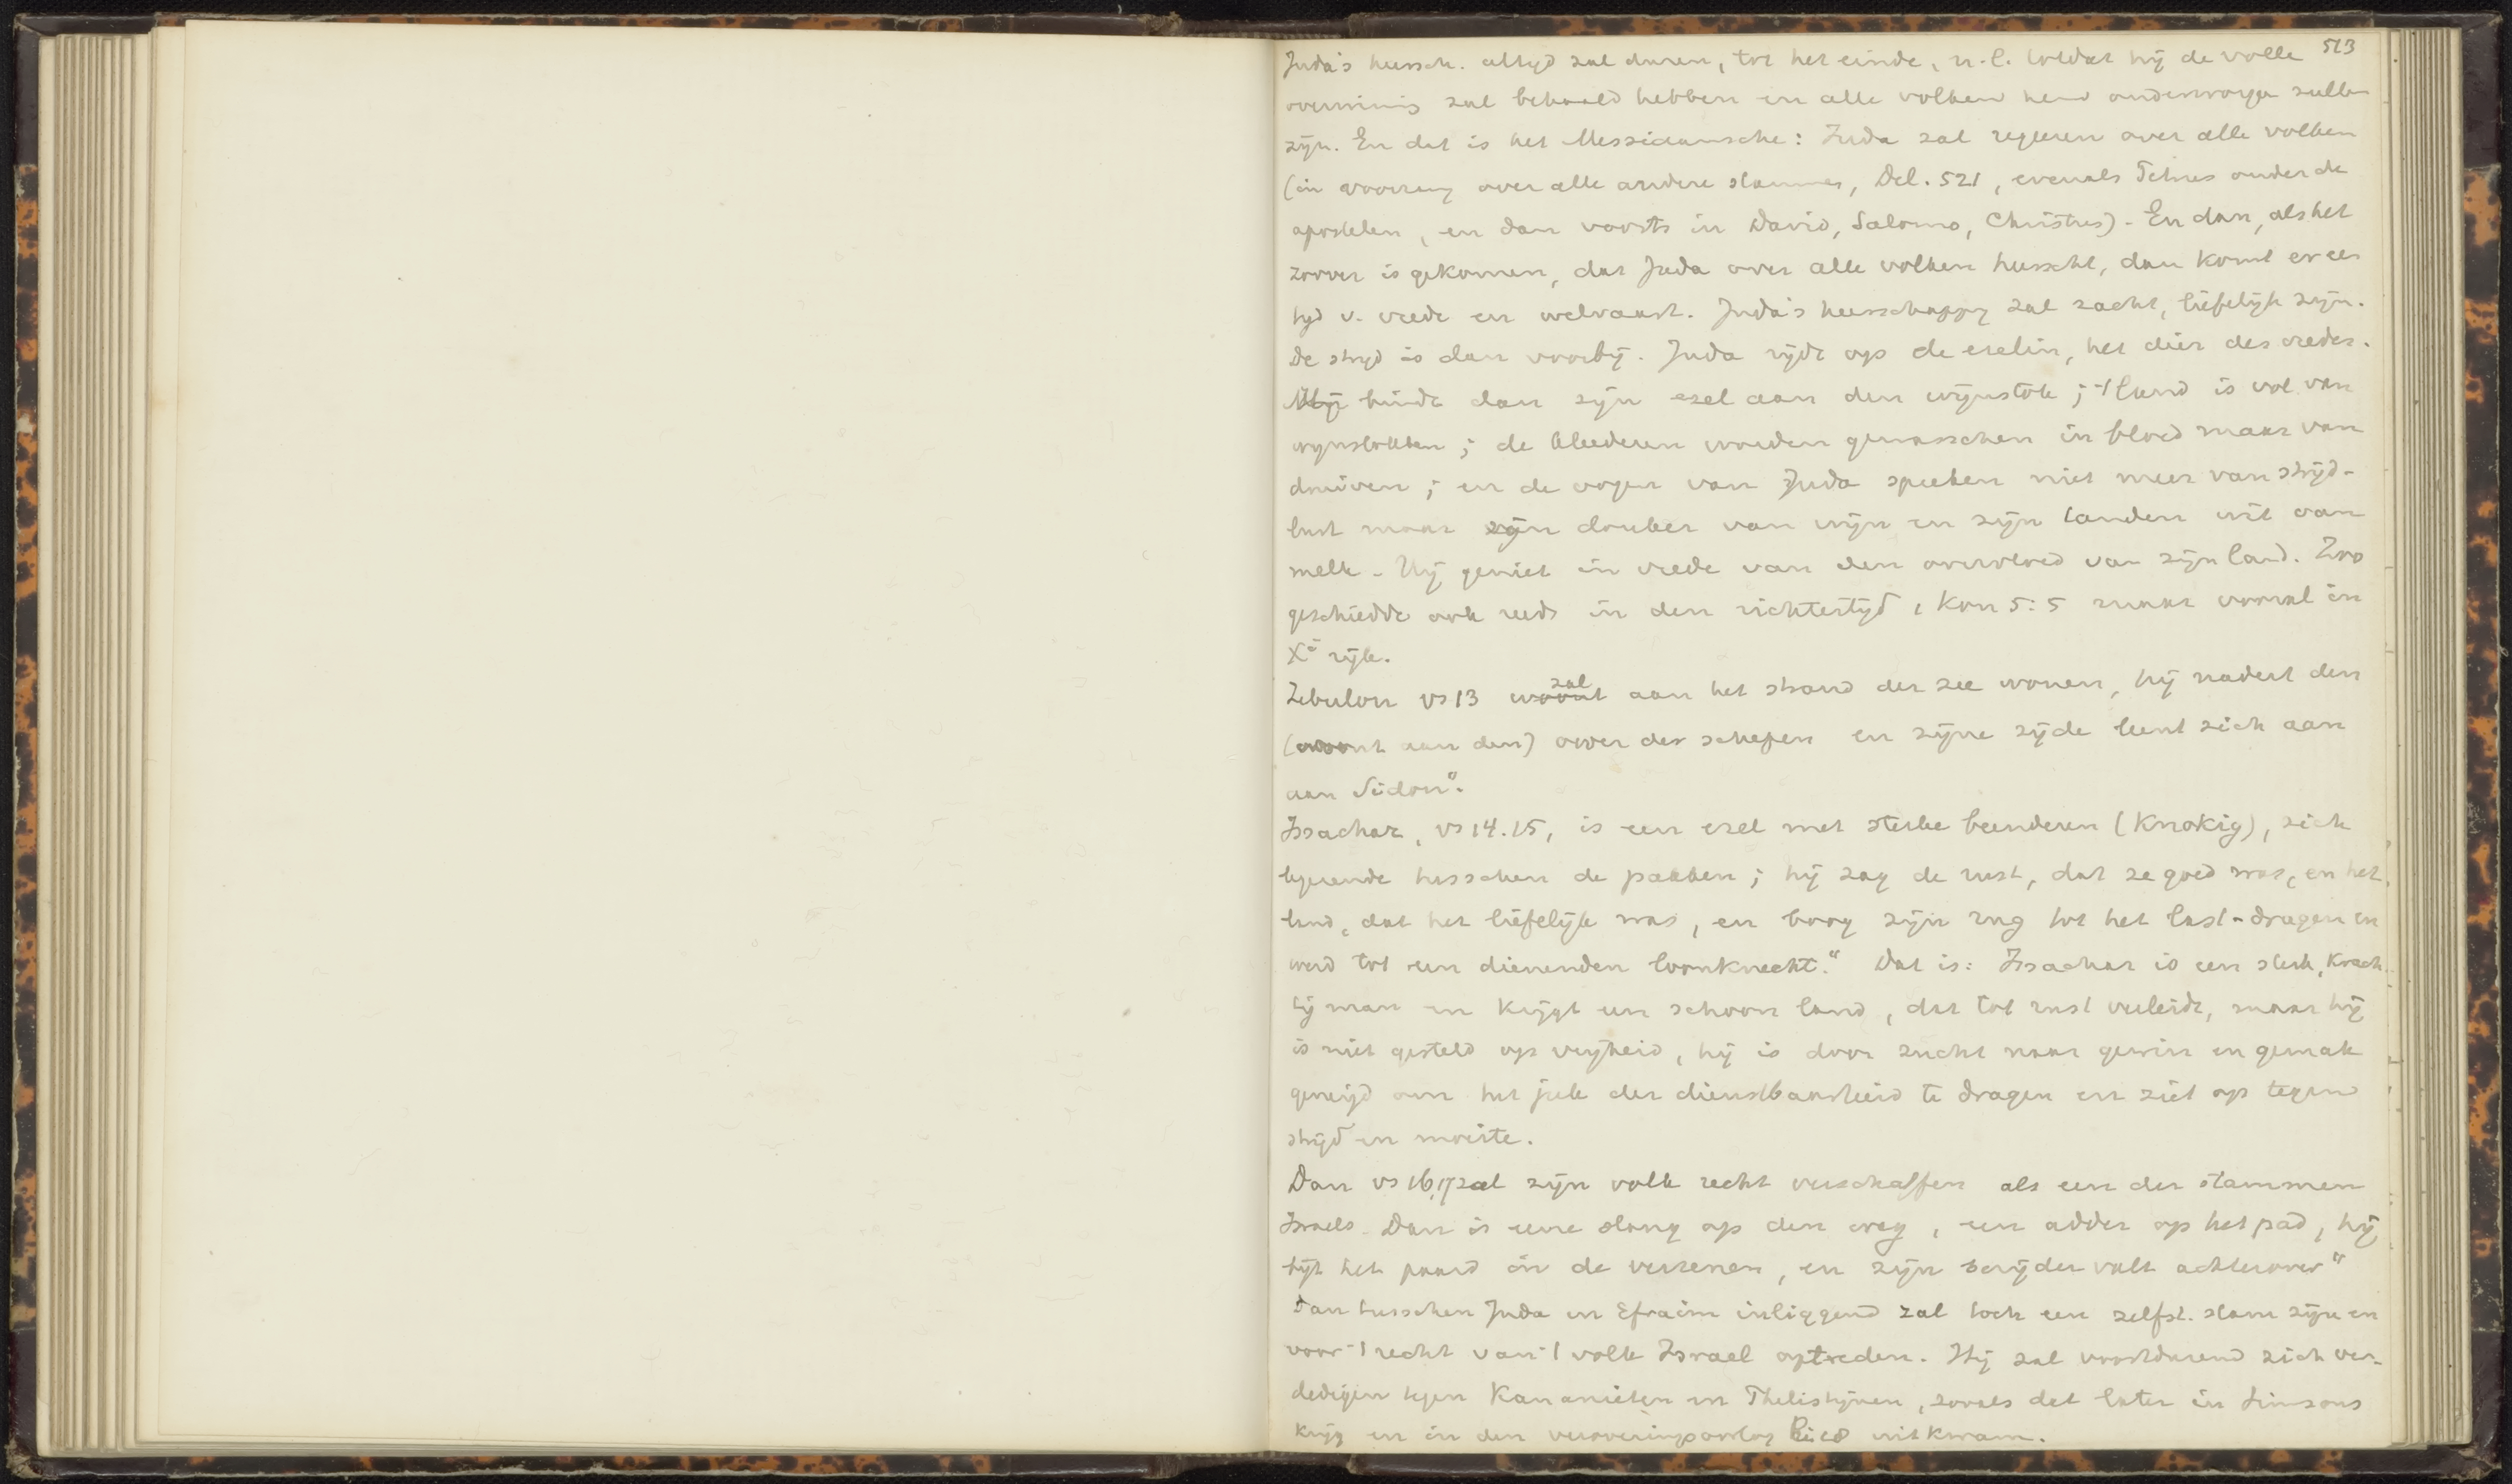 513
Juda's heersch. altijd zal duren, tot het einde, n.l. totdat hij de volle
overwinnig zal behaald hebben en alle volken hem onderworpen zullen
zijn. En dat is het Messiaansche: Juda zal regeeren over alle volken
(in voorrang over alle andere stammen, Del. 521, evenals Petrus onder de
apostelen, en dan voorts in David, Salomo, Christus). En dan, als het
zoover is gekomen, dat Juda over alle volken heerscht, dan komt er een
tijd v. vrede en welvaart. Juda's heerschappij zal zacht, liefelijk zijn.
De strijd is dan voorbij. Juda rijdt op de ezelin, het dier des vredes.
Hij bindt dan zijn ezel aan den wijnstok; 't land is vol van
wijnstokken; de kleederen worden gewasschen in bloed maar van
druiven; en de oogen van Juda spreken niet meer van strijd-
lust maar zijn donker van wijn en zijn tanden wit van
melk. Hij geniet in vrede van den overvloed van zijn land. Zoo
geschiedde ook reeds in den richtertijd, 1 Kon 5:5 maar vooral in
Xs rijk.
Zebulon vs 13 woont zal aan het strand der zee wonen, hij nadert den
(woont aan den) oever der schepen en zijne zijde leunt zich aan
aan Sidon".
Issachar, vs 14.15, is een ezel met sterke beenderen (knokig), zich
legerende tusschen de pakken; hij zag de rust, dat ze goed was, en het
land, dat het liefelijk was, en boog zijn rug tot het last-dragen en
werd tot een dienenden loonknecht." Dat is: Issachar is een sterk, krach-
tig man en krijgt een schoon land, dat tot rust verleidt, maar hij
is niet gesteld op vrijheid, hij is door zucht naar gewin en gemak
geneigd om het juk der dienstbaarheid te dragen en ziet op tegen
strijd en moeite.
Dan vs 16,17 zal zijn volk recht verschaffen als een der stammen
Israels. Dan is eene slang op den weg, een adder op het pad, hij
bijt het paard in de verzenen, en zijn berijder valt achterover"
Dan tusschen Juda en Efraim inliggend zal toch een zelfst. stam zijn en
voor 't recht van 't volk Israel optreden. Hij zal voortdurend zich ver-
dedigen tegen Kananieten en Philistijnen, zooals dat later in Simsons
krijg en in den veroveringsoorlog Ri 18 uitkwam.